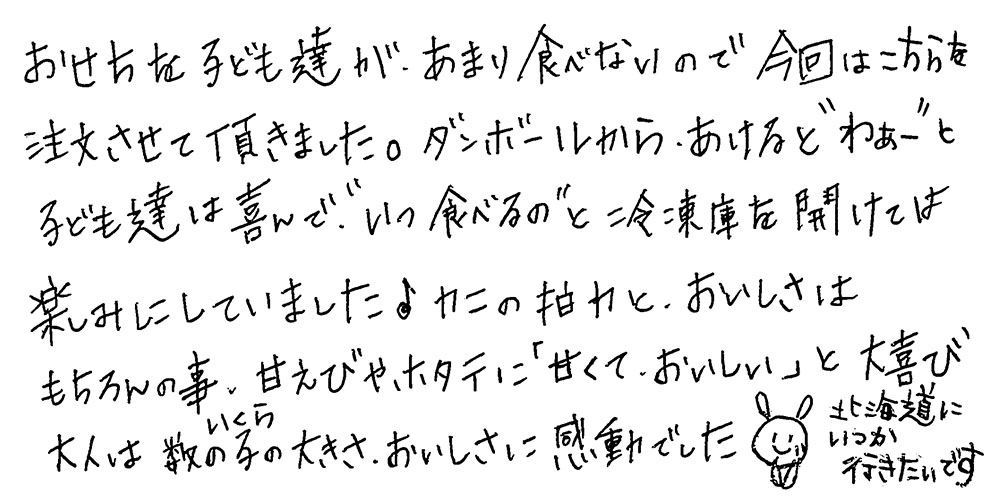 おせちを子ども達が、あまり食べないので今回はこちらを
注文させて頂きました。ダンボールから、あけると"わぁー"と
子ども達は喜んで、"いつ食べるの"と冷凍庫を開けては
楽しみにしていました♪カニの迫力と、おいしさは
もちろんの事、甘えびや、ホタテに「甘くて、おいしい」と大喜び
いくら
大人は数の子の大きさ、おいしさに感動でした
北海道に
いつか
行きたいです